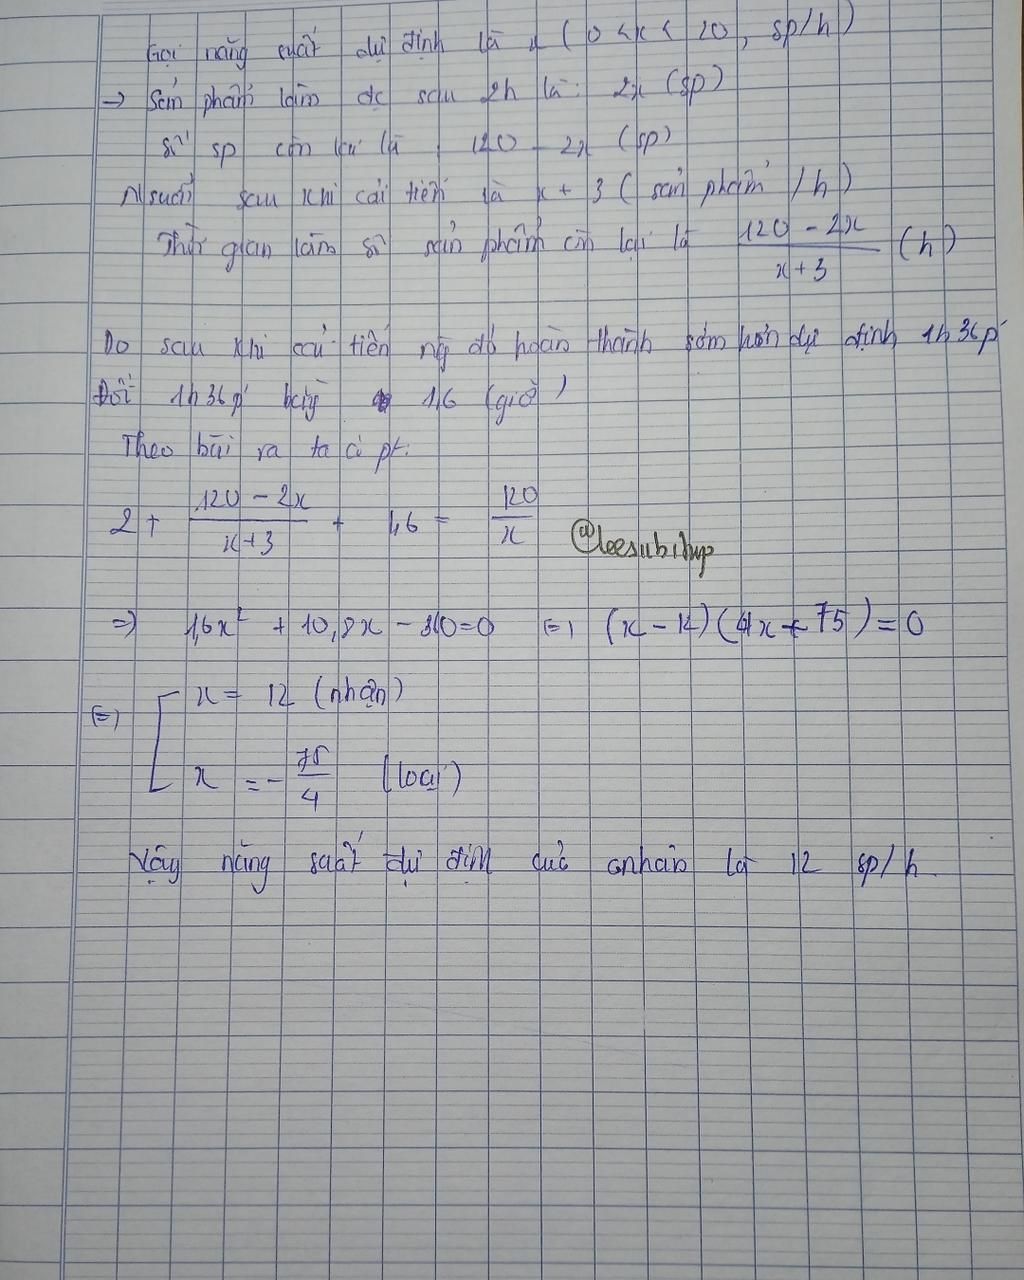 Gọi năng suất dự định là x ( 0 < x < 20, sp/h)
→ Sản phẩm làm đc sau 2h là: 2x (sp)
số sp còn lại là : 120 - 2x (sp)
N suất sau khi cải tiến là x + 3 ( sản phẩm / h)
Thời gian làm số sản phẩm còn lại là \frac{120 - 2x}{x+3} (h)
Do sau khi cải tiến ng đó hoàn thành sớm hơn dự định 1h36p
Đổi 1h36p' bằng 1,6 (giờ)
Theo bài ra ta có pt:
2 + \frac{120 - 2x}{x+3} + 1,6 = \frac{120}{x}
@leesubin
=> 1,6x² + 10,8x - 360 = 0 <=> (x - 12)(4x + 75) = 0
<=> [ x = 12 (nhận)
x = - \frac{75}{4} (loại)
Vậy năng suất dự định của cnhân là 12 sp/h